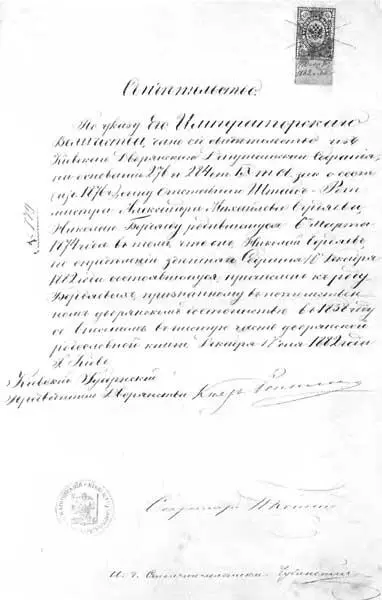 Свидѣтельство.
По указу Его Императорскаго
Величества, дано сіе свидѣтельство изъ
Кіевскаго Дворянскаго Депутатскаго Собранія,
на основаніи 276 и 284 ст. IX т. св. зак. о сост.
(из. 1876 г.) сыну отставнаго Штабъ-Рот-
мистра Александра Михайлова Бердяева,
Николаю Бердяеву родившемуся 6 Марта
1874 года въ томъ, что онъ Николай Бердяевъ,
по опредѣленію здѣшняго Собранія 16 Декабря
1882 года состоявшемуся, причисленъ къ роду
Бердяевыхъ, признанному въ потомствен-
номъ дворянскомъ достоинствѣ въ 1838 году
со внесеніемъ въ шестую часть дворянской
родословной книги. Декабря дня 1882 года
г. Кіевъ
Кіевскій Губернскій
Предводитель Дворянства Князь
Секретарь
И. д.
№